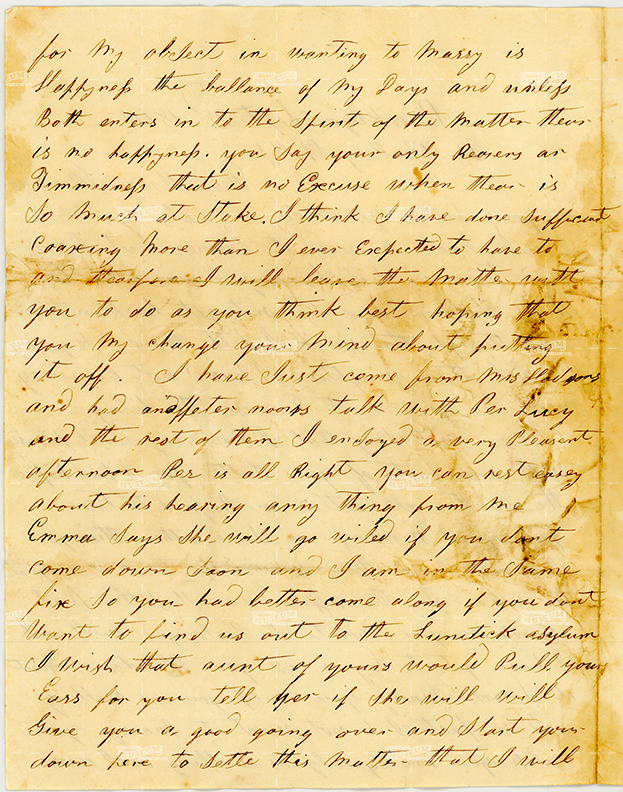 for My object in wanting to Marry is
Happyness the ballance of My Days and unless
Both enters in to the Spirit of the Matter thear
is no happyness. you Say your only Reasers ar
Timmidness that is no Excuse when thear is
So Much at Stake. I think I have done Sufficient
Coaxing More than I ever Expected to have to
and thearfore I will leave the Matter with
you to do as you think best hoping that
you My change your Mind about putting
it off. I have Just come from Mrs
and had an after noons talk with Per Lucy
and the rest of them I endoyed a very Pleasent
afternoon Per is all Right you can rest easey
about his hearing anny thing from me
Emma Says She will go wiled if you dont
come down Soon and I am in the Same
fix So you had better come along if you dont
Want to find us out to the Lunitick asylum
I wish that aunt of yours would Pull your
Ears for you tell her if She will will
Give you a good going over and Start you
down here to Settle this Matter that I will